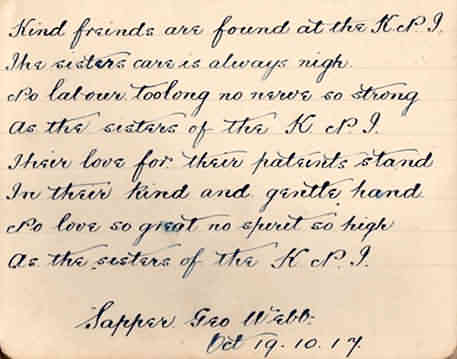 Kind freinds are found at the K.N.I.
The sisters care is always nigh.
No labour too long no nerve so strong
As the sisters of the K N I.
Their love for their patients stand
In their kind and gentle hand
No love so great no spirit so high
As the sisters of the K N. I.
Sapper Geo Webb.
Oct 19.10.17